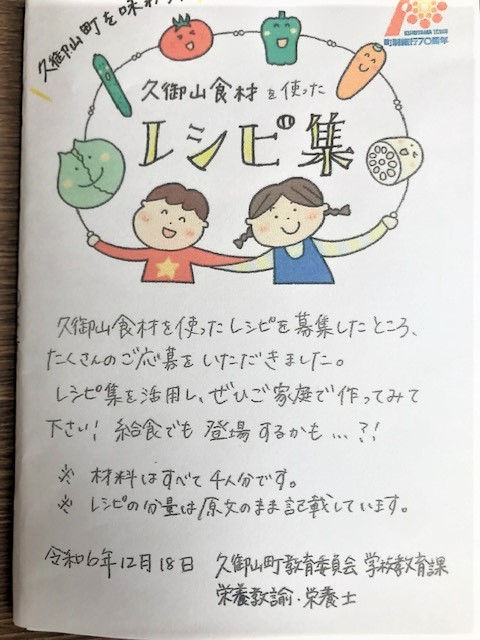 久御山町を味わ
KUMIYAMA TOWN
町制施行70周年
久御山食材を使った
レシピ集
久御山食材を使ったレシピを募集したところ、
たくさんのご応募をいただきました。
レシピ集を活用し、ぜひご家庭で作ってみて
下さい！給食でも登場するかも…?!
※ 材料はすべて4人分です。
※ レシピの分量は原文のまま記載しています。
令和6年12月18日 久御山町教育委員会 学校教育課
栄養教諭・栄養士